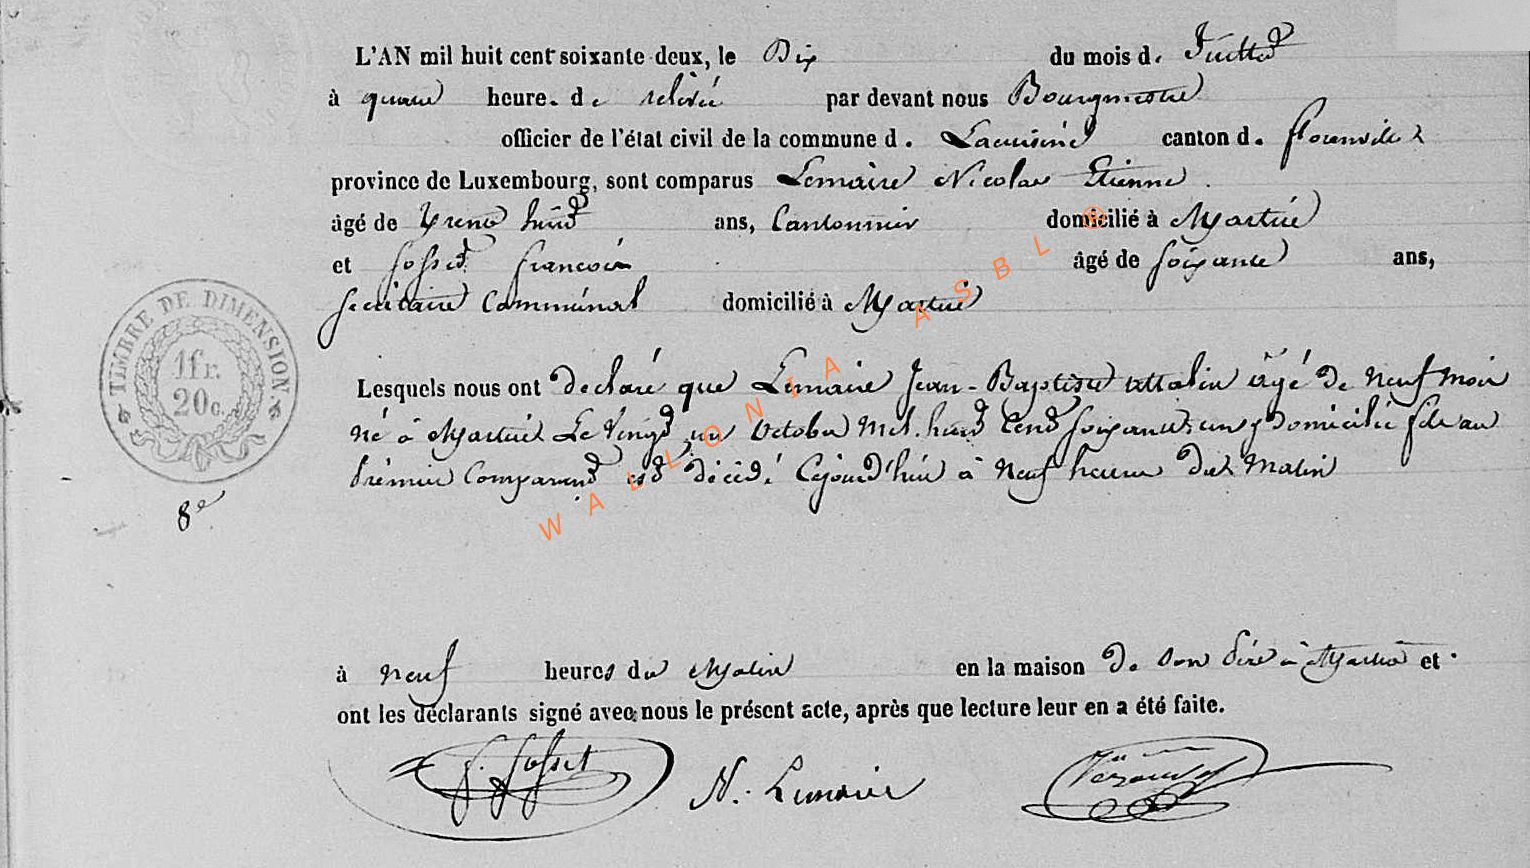 L'AN mil huit cent soixante deux, le Dix du mois de Juillet
à quatre heure. de relevée par devant nous Bourgmestre
officier de l'état civil de la commune d. Lacuisine canton d. florenville
province de Luxembourg, sont comparus Lemaire Nicolas Etienne
âgé de trente huit ans, Cantonnier domicilié à Martué
et fosset françois âgé de soixante ans,
secrétaire Communal domicilié à Martué
Lesquels nous ont déclaré que Lemaire Jean-Baptiste attalin âgé de neuf mois
né à Martué Le Vingt un octobre Mil. huit Cent soixante un y Domicilié fils au
prémier Comparant est décédé Cejourd'hui à Neuf heures du Matin
TIMBRE DE DIMENSION
1fr.
20c.
8e
à neuf heures du Matin en la maison de son père à Martué et
ont les déclarants signé avec nous le présent acte, après que lecture leur en a été faite.
f. fosset N. Lemaire
WALLONIA ASBL ©